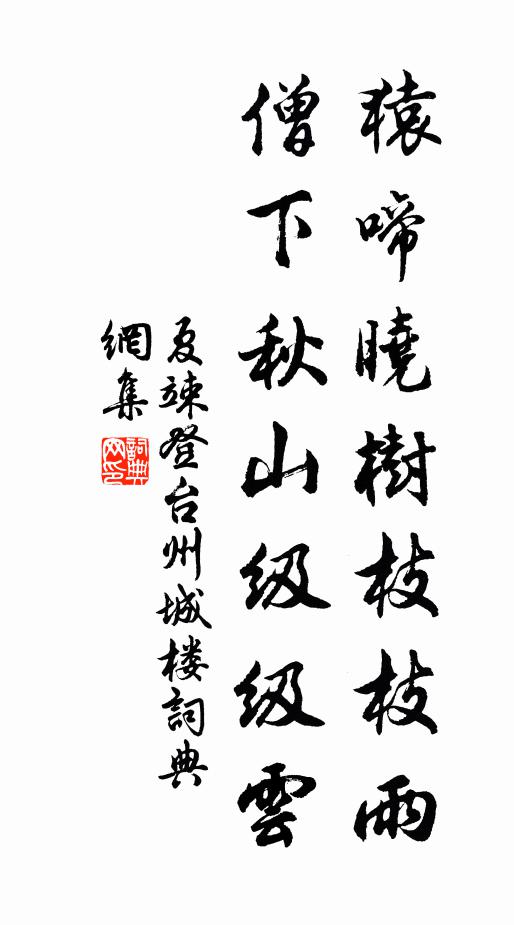 猿啼曉樹枝枝雨
僧下秋山級級雲
夏竦登台州城楼詞典
網集
詞典
网印